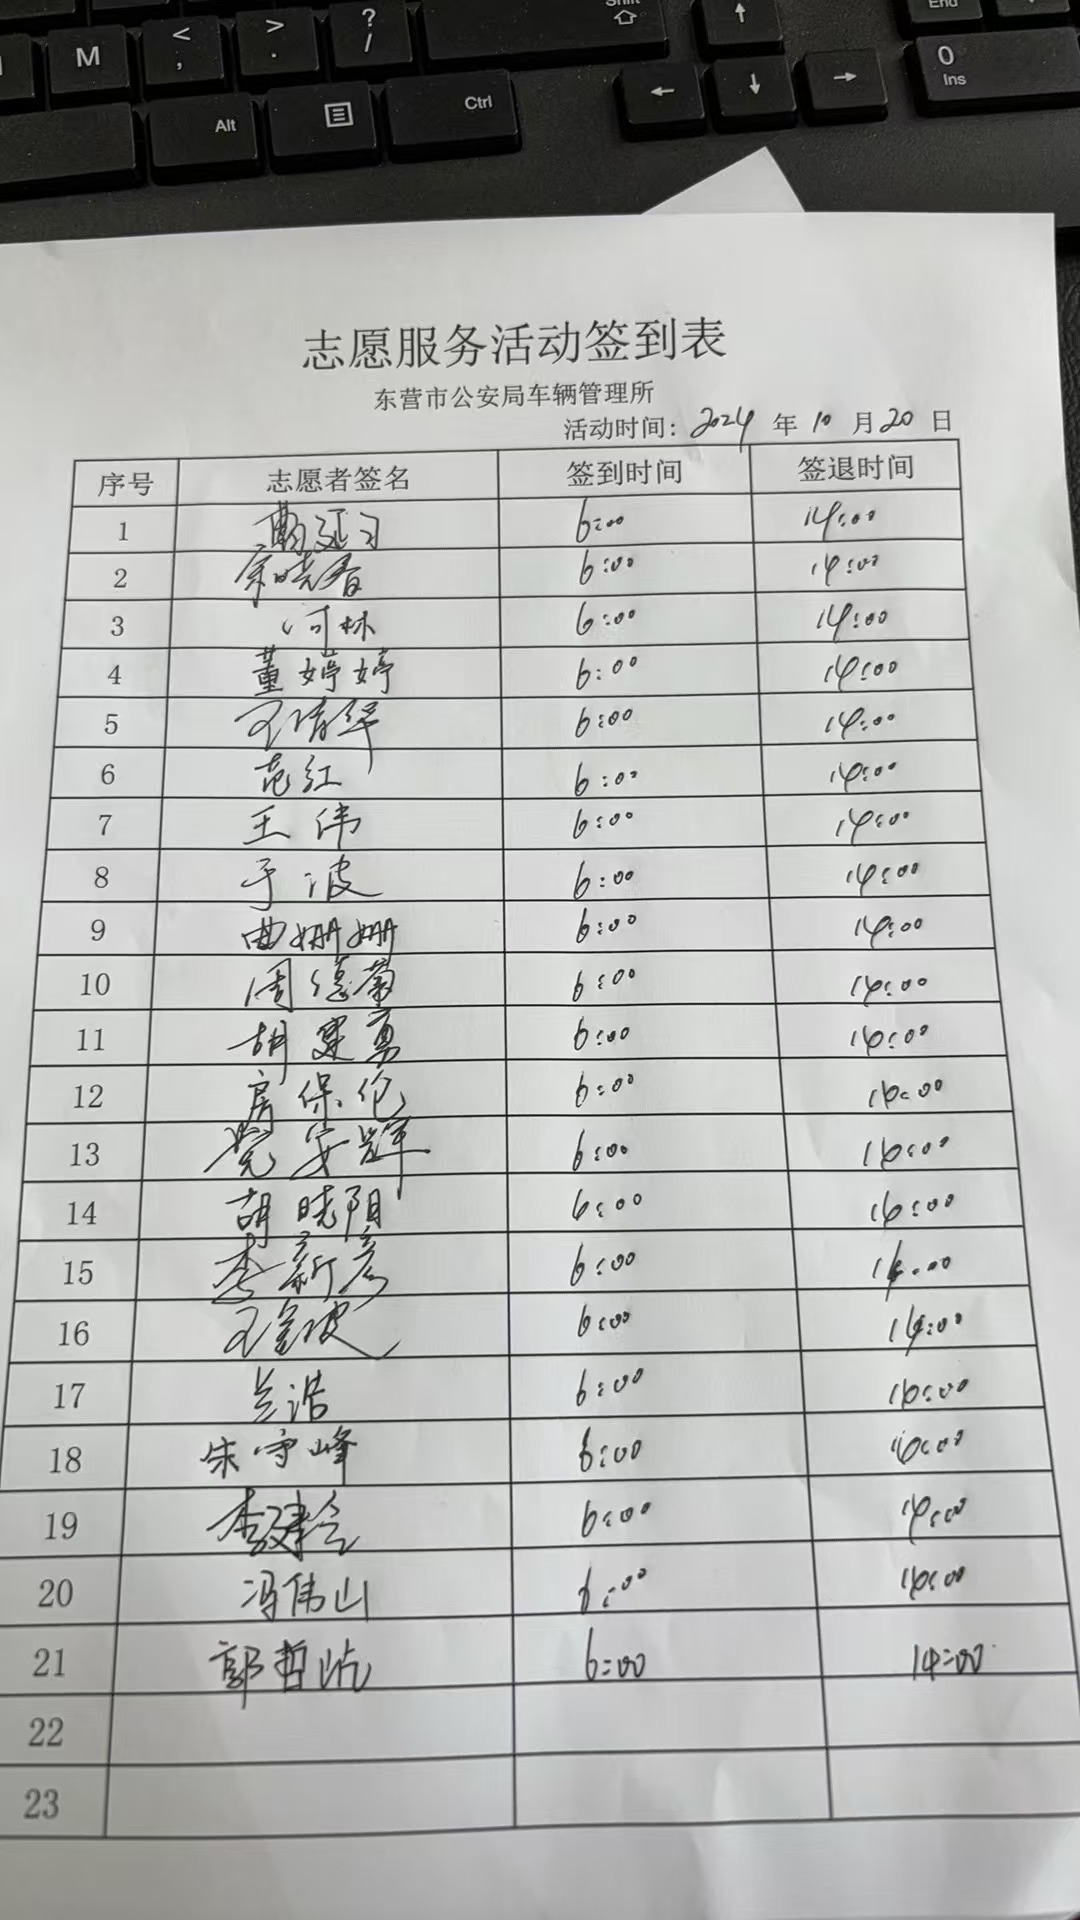 M
<
,
>
.
?
/
Shift
End
0
Ins
Alt
Ctrl
志愿服务活动签到表
东营市公安局车辆管理所
活动时间: 2024 年 10 月 20 日
序号 志愿者签名 签到时间 签退时间
1 6:00 14:00
2 6:00 14:00
3 6:00 14:00
4 董婷婷 6:00 14:00
5 6:00 14:00
6 范红 6:00 14:00
7 王伟 6:00 14:00
8 于波 6:00 14:00
9 曲姗姗 6:00 14:00
10 周德菊 6:00 14:00
11 胡建勇 6:00 14:00
12 房保伦 6:00
13 安辉 6:00
14 胡晓阳 6:00
15 李新彦 6:00
16 6:00 14:00
17 兰浩 6:00
18 宋守峰 6:00
19 李建会 6:00 14:00
20 冯伟山 6:00
21 郭哲屹 6:00 14:00
22
23